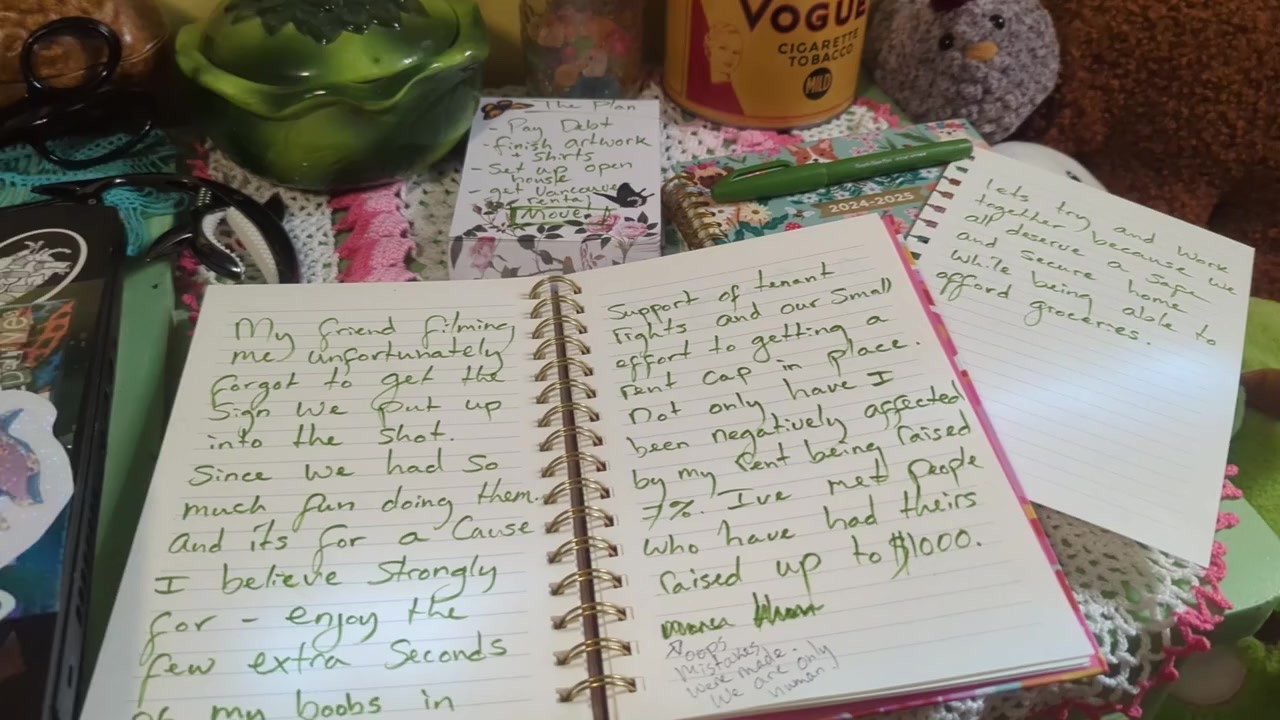 VOGUE
CIGARETTE
TOBACCO
MILD
The Plan
- Pay Debt
- finish artwork
+ shirts
- Set up open
house
- get Vancouver
rental
Move
2024-2025
My friend filming
me unfortunately
forgot to get the
Sign we put up
into the shot.
Since we had so
much fun doing them.
and its for a Cause
I believe Strongly
for - enjoy the
few extra Seconds
of my boobs in
Support of tenant
rights and our Small
effort to getting a
rent cap in place.
Not only have I
been negatively affected
by my rent being raised
7%. Ive met people
who have had theirs
raised up to $1000.
oops
mistakes
were made.
We are only
human!
lets try and work
together because we
all deserve a safe
and secure home
while being able to
afford groceries.